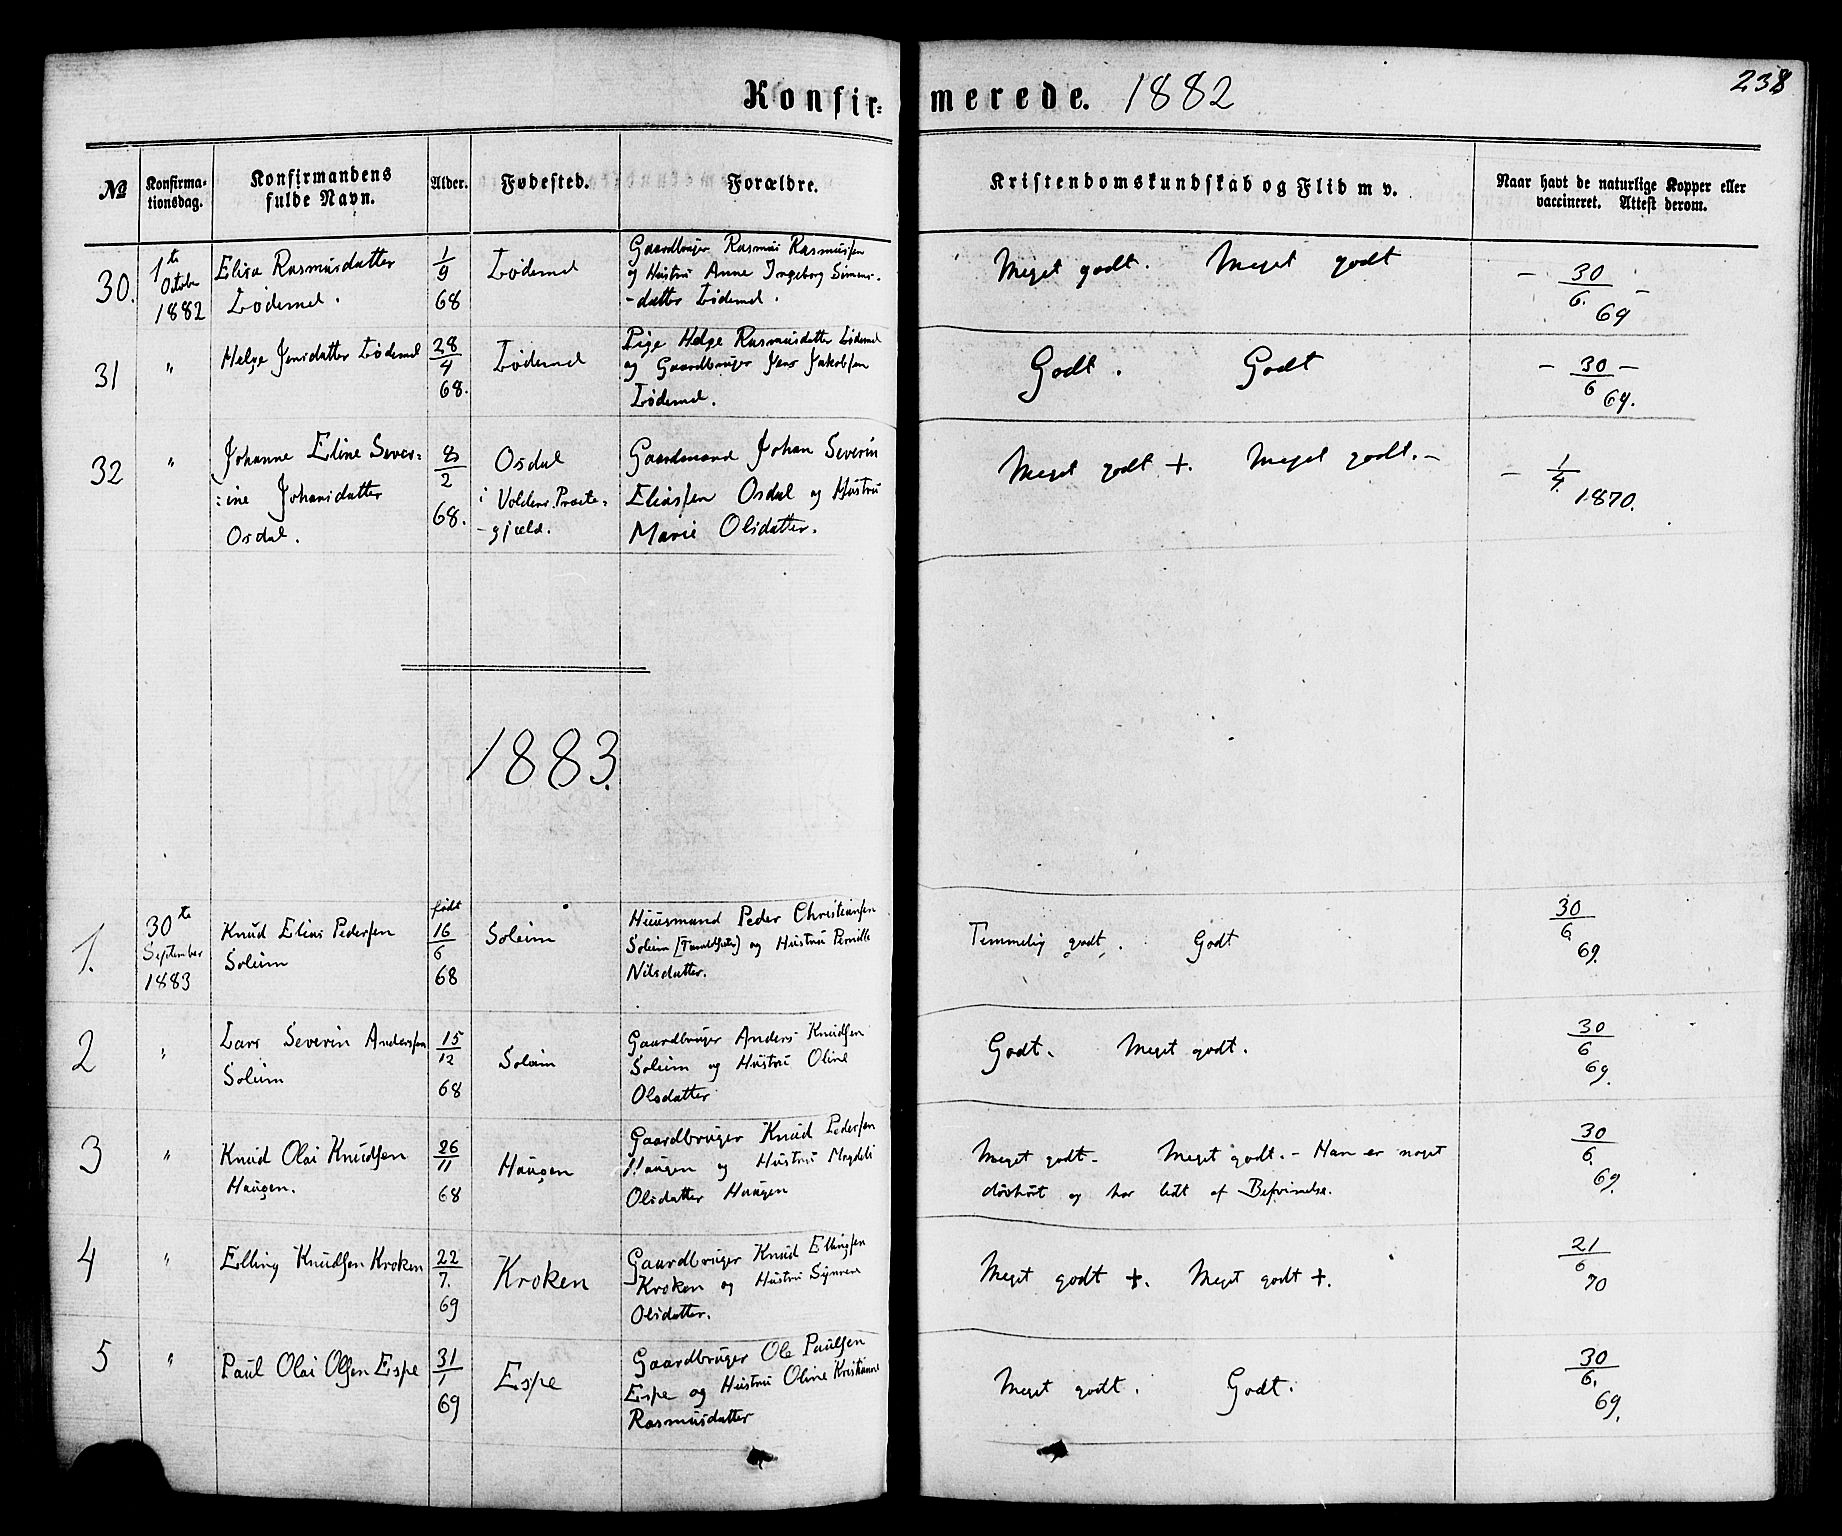 Konfir=
merede. 1882
238
No
Konfirma-
tionsdag.
Konfirmandens
fulde Navn.
Alder.
Fødested.
Forældre.
Kristendomskundskab og Flid m v.
Naar havt de naturlige Kopper eller
vaccineret. Attest derom.
30.
1te
Octobr
1882
Elisa Rasmusdatter
Lødemel.
1/9
68
Lødemel
Gaardbruger Rasmus Rasmussen
og Hustru Anne Ingeborg Simens-
-datter Lødemel.
Meget godt. Meget godt
- 30/6 69 -
31
"
Helge Jensdatter Lødemel
28/4
68.
Lødemel
Pige Helge Rasmusdatter Lødemel
og Gaardbruger Jens Jakobsen
Lødemel.
Godt. Godt
- 30/6 69. -
32
"
Johanne Eline Sever=
=ine Johansdatter
Osdal.
8/2
68.
Osdal
i Voldens Præste=
-gjeld.
Gaardmand Johan Severin
Eliassen Osdal og Hustru
Marie Olsdatter.
Meget godt +. Meget godt. -
- 1/4 1870.
1883.
1.
30te
September
1883
Knud Elias Pedersen
Soleim
født
16/6
68
Soleim
Huusmand Peder Christiansen
Soleim og Hustru Pernille
Nilsdatter.
Temmelig godt. Godt
30/6. 69.
2
"
Lars Severin Anderssen
Soleim
15/12
68
Soleim
Gaardbruger Anders Knudsen
Soleim og Hustru Oline
Olsdatter
Godt. Meget godt.
30/6 69.
3
"
Knud Olai Knudsen
Haugen.
26/11
68
Haugen
Gaardbruger Knud Pedersen
Haugen og Hustru Magdeli
Olsdatter Haugen
Meget godt - Meget godt. - Han er noget
døvhørt og har lidt af Besvimelse.
30/6. 69.
4
"
Elling Knudsen Kroken
22/7.
69
Kroken
Gaardbruger Knud Ellingsen
Kroken og Hustru Synneve
Olsdatter.
Meget godt +. Meget godt +.
21/6 70
5
"
Paul Olai Olsen Espe
31/1
69
Espe
Gaardbruger Ole Paulsen
Espe og Hustru Oline Kristianne
Rasmusdatter
Meget godt. Godt.
30/6. 69.